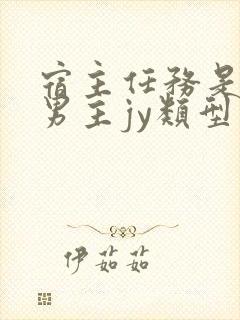 宿主任務是
男主jy類型
伊茹茹